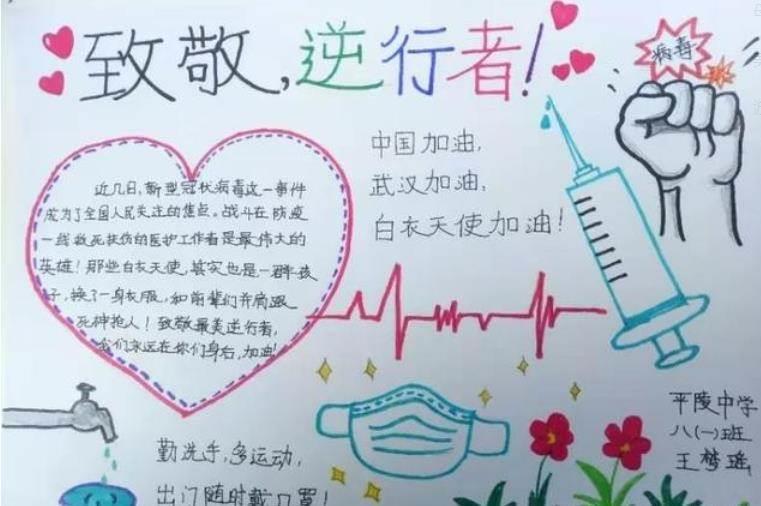 致敬,逆行者!
病毒
中国加油,
武汉加油,
白衣天使加油!
近几日,新型冠状病毒这一事件
成为了全国人民关注的焦点。战斗在防疫
一线救死扶伤的医护工作者是最伟大的
英雄!那些白衣天使,其实也是一群孩
子,换了一身衣服,和前辈们并肩跟
死神抢人!致敬最美逆行者,
我们永远在你们身后,加油!
勤洗手,多运动,
出门随时戴口罩!
平陵中学
八(一)班
王梦瑶